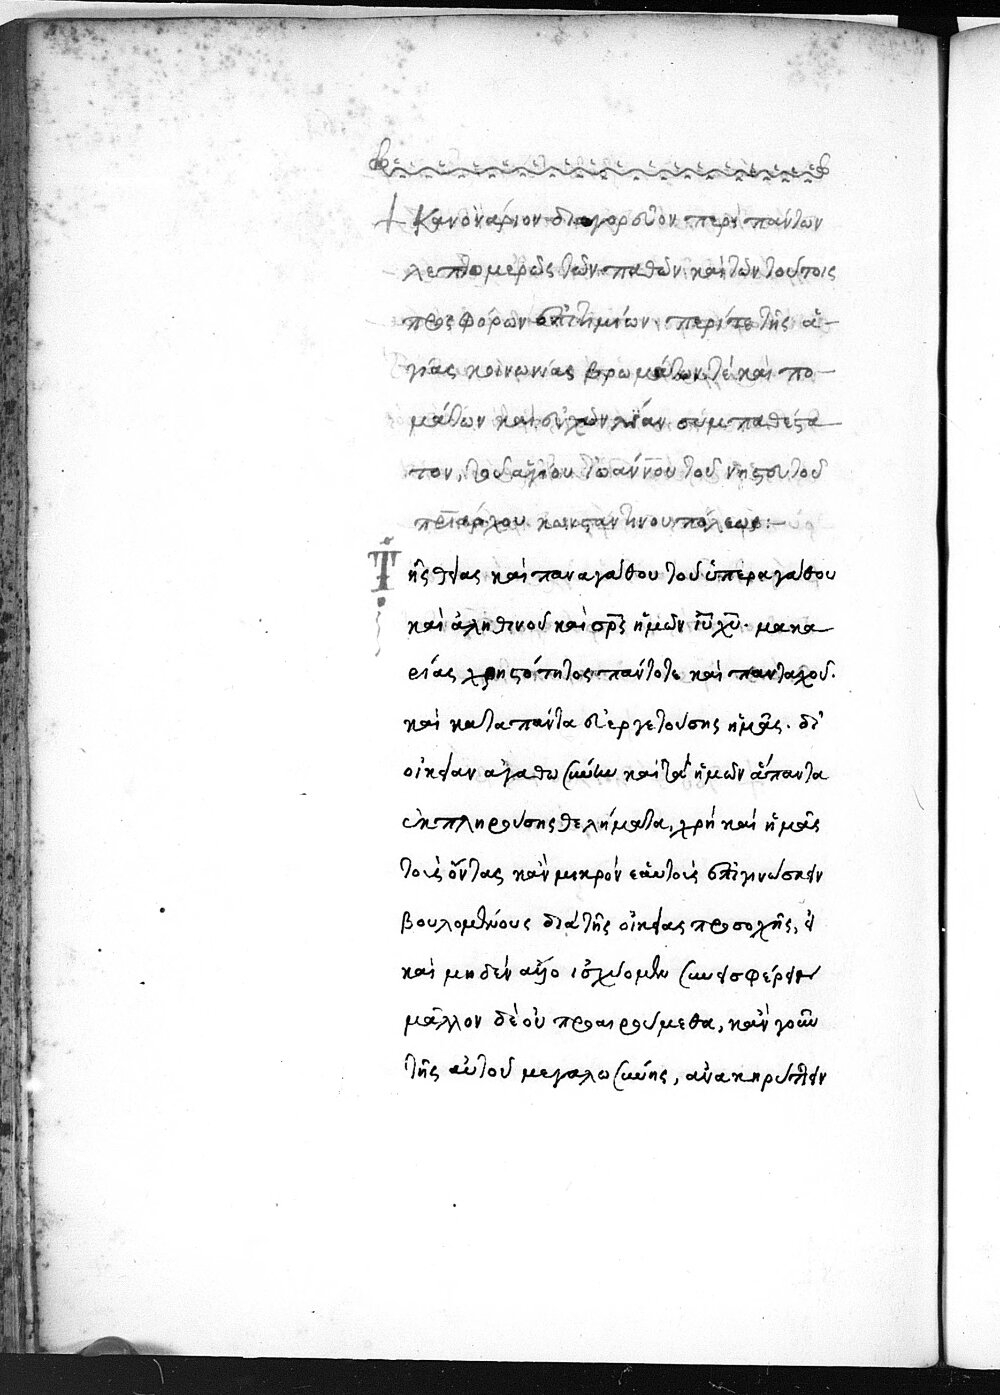 Κανονάριον διαγορεῦον περὶ πάντων
λεπτομερῶς τῶν παθῶν καὶ τῶν τούτοις
προσφόρων ἐπιτιμίων περί τε τῆς ἁ
γίας κοινωνίας βρωμάτων τὲ καὶ πο
μάτων καὶ εὐχῶν λίαν συμπαθέστα
τον, τοῦ ἁγίου Ἰωάννου τοῦ νηστευτοῦ
πριάρχου κωνσταντινουπόλεως:
Τῆς θείας καὶ παναγάθου τοῦ ὑπεραγάθου
καὶ ἀληθινοῦ καὶ σρς ἡμῶν ἰυ χυ. μακα
ρίας χρηστότητος πάντοτε καὶ πανταχοῦ.
καὶ κατα πάντα εὐεργετούσης ἡμᾶς. δι'
οἰκείαν ἀγαθωσύνην καὶ τὰ ἡμῶν ἅπαντα
ἐκπληρούσης θελήματα, χρὴ καὶ ἡμᾶς
τοὺς ὄντας κἂν μικρὸν ἑαυτοὺς ἐπιγινώσκειν
βουλομένους διὰ τῆς οἰκείας προσοχῆς, εἰ
καὶ μηδὲν ἄξιο ἰσχύομεν συνεισφέρειν
μᾶλλον δὲ οὐ προαιρούμεθα, κἂν γοῦν
τῆς αὐτοῦ μεγαλωσύνης, ἀνακηρύττειν